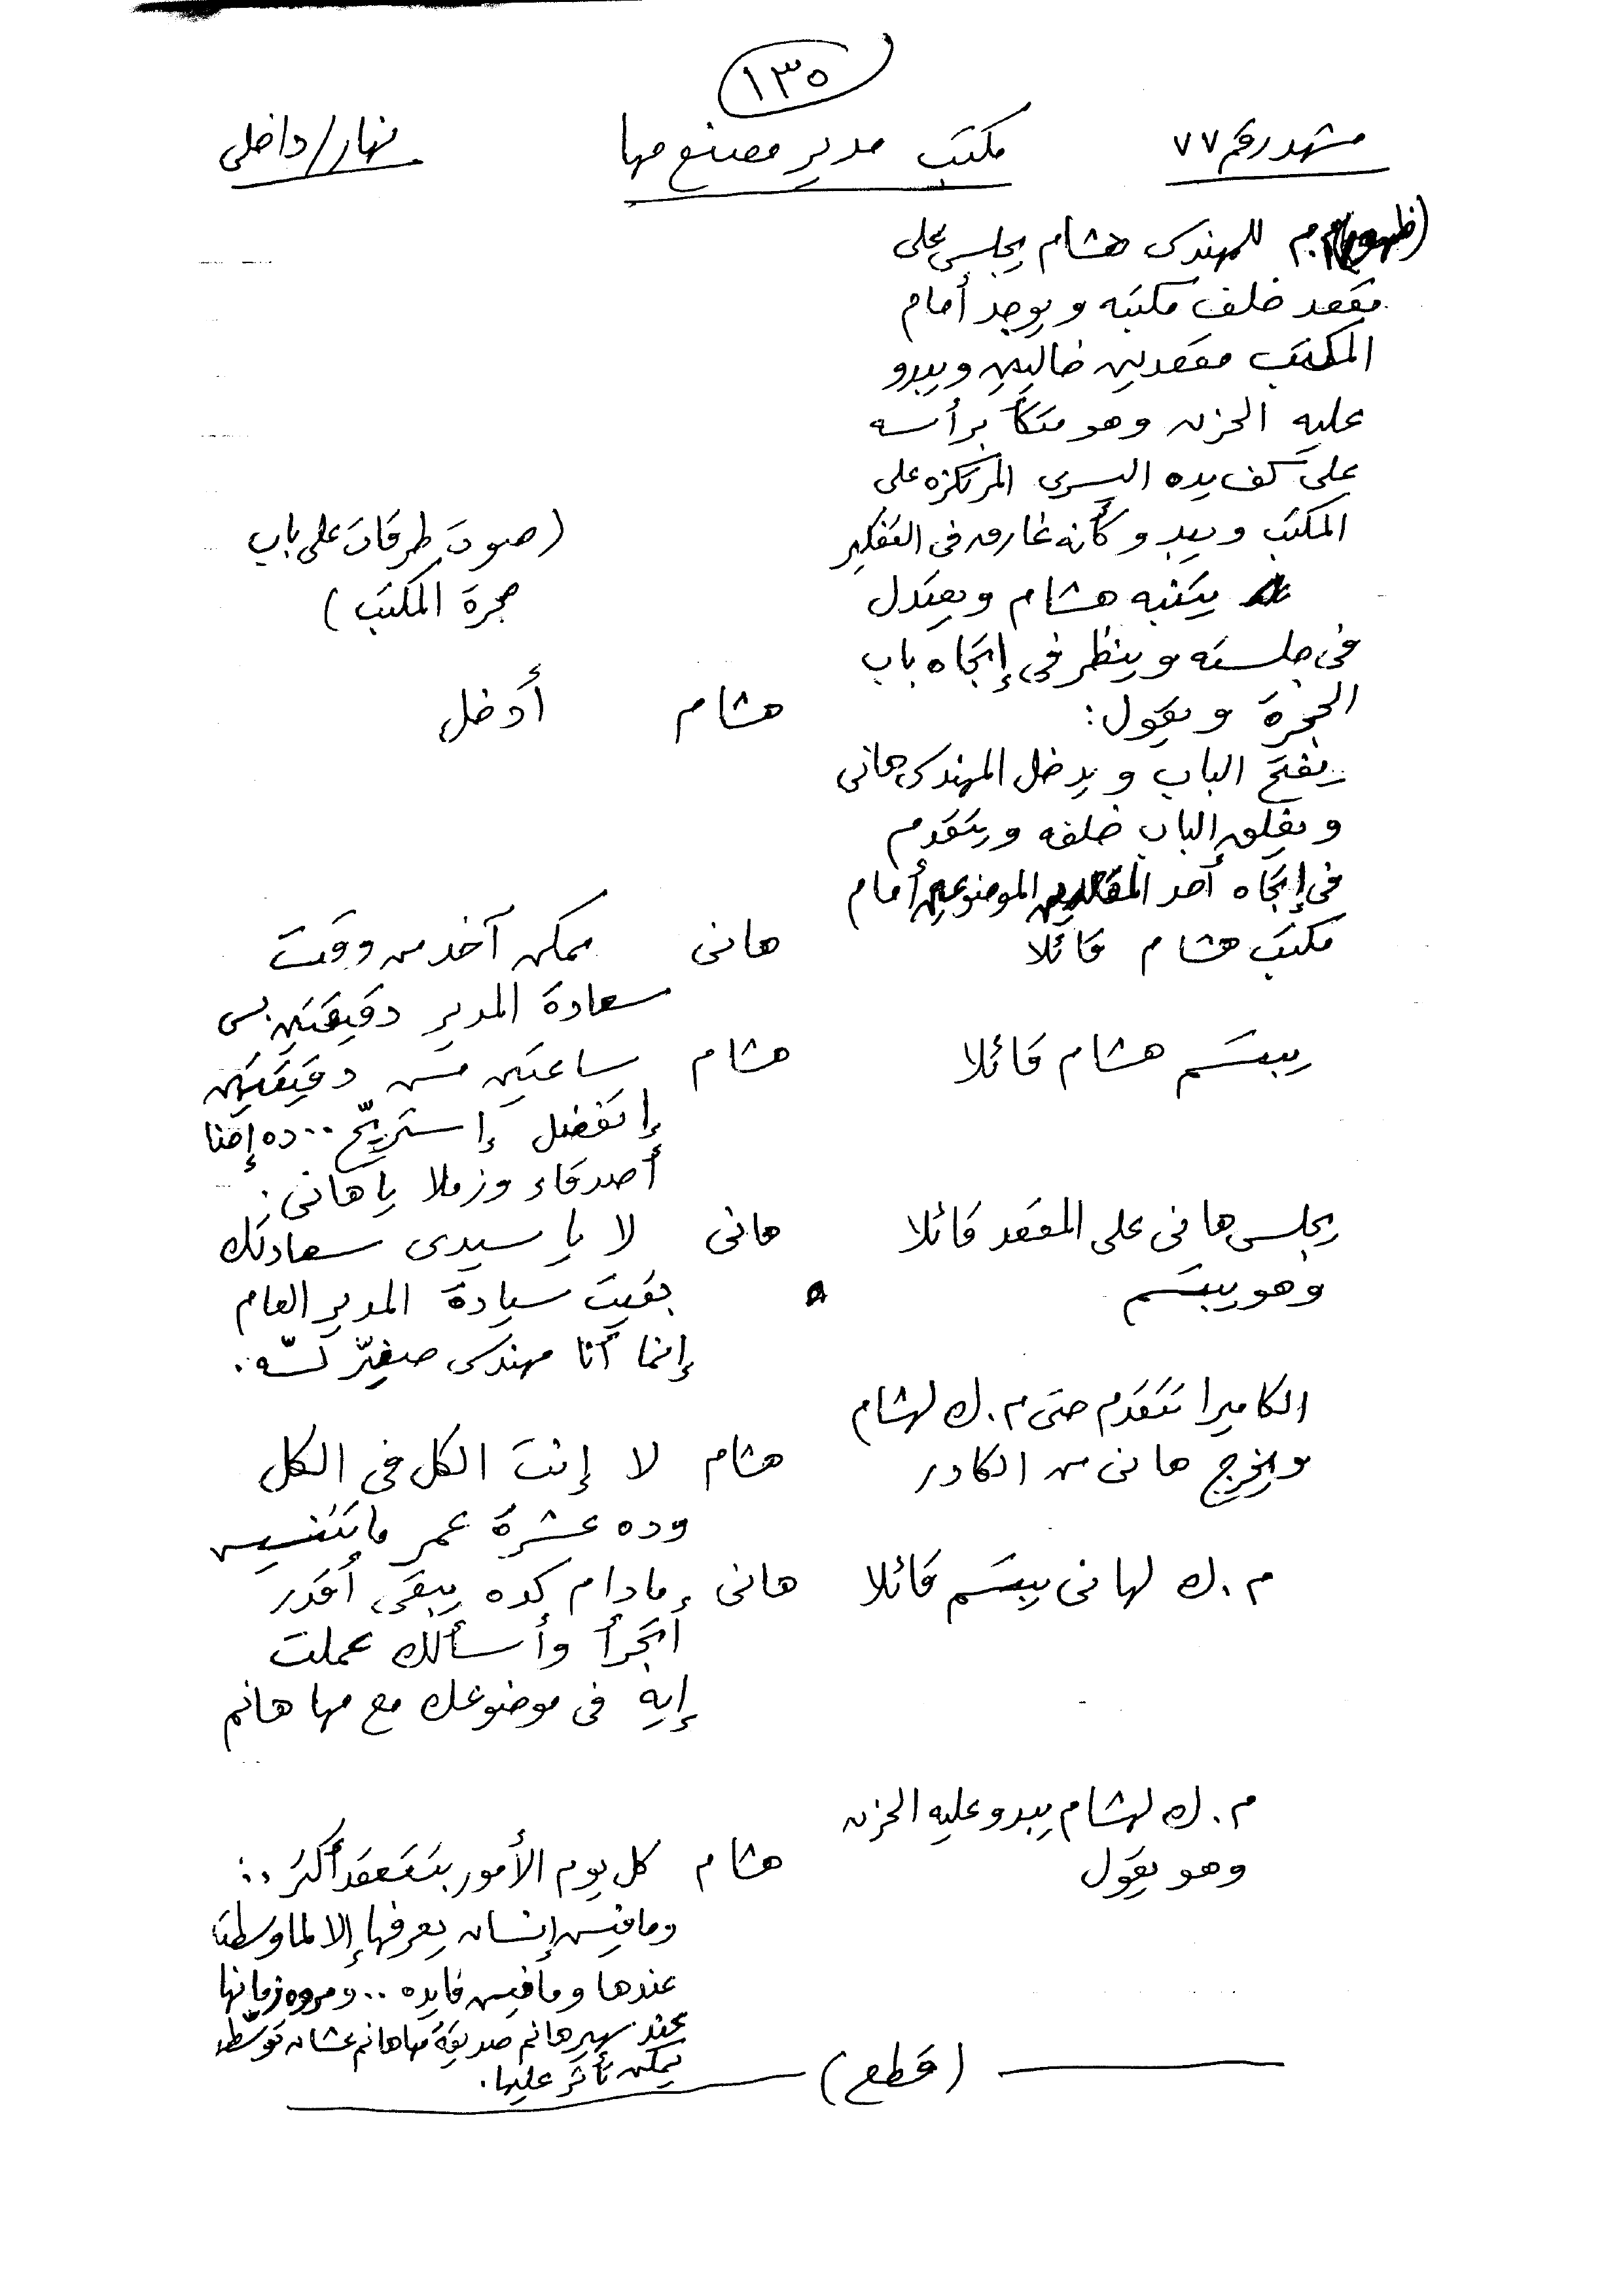 ١٣٥
مشهد رقم ٧٧ مكتب مدير مصنع مها نهار/داخلى
(ظهور م.م للمهندس هشام يجلس على
مقعد خلف مكتبه ويوجد أمام
المكتب مقعدين خاليين ويبدو
عليه الحزن وهو متكأ برأسه
على كف يده اليسرى المرتكزه على
المكتب ويبدو وكأنه غارق فى التفكير
(صوت طرقات على باب
حجرة المكتب)
ينتبه هشام ويعتدل
فى جلسته وينظر فى إتجاه باب
الحجرة ويقول:
هشام أدخل
يفتح الباب ويدخل المهندس هانى
ويغلق الباب خلفه ويتقدم
فى إتجاه أحد المقعدين الموضوعين أمام
مكتب هشام قائلا
هانى ممكن آخد من وقت
سعادة المدير دقيقتين بس
يبتسم هشام قائلا
هشام ساعتين مش دقيقتين
إتفضل إستريّح .. ده إحنا
أصدقاء وزملا يا هانى.
يجلس هانى على المقعد قائلا
وهو يبتسم
هانى لا يا سيدى سعادتك
بقيت سيادة المدير العام
إنما أنا مهندس صغيّر لسّه.
الكاميرا تتقدم حتى م.ك لهشام
ويخرج هانى من الكادر
هشام لا إنت الكل فى الكل
وده عشرة عمر ماتتنسيش
م.ك لهانى يبتسم قائلا
هانى مادام كده يبقى أقدر
أتجرأ وأسألك عملت
إيه فى موضوعك مع مها هانم
م.ك لهشام يبدو عليه الحزن
وهو يقول
هشام كل يوم الأمور بتتعقد أكتر..
ومافيش إنسان يعرفها إلا لما وسطته
عندها ومافيش فايده .. ومروه زمانها
عند سهير هانم صديقة مها هانم عشان توسّطها
يمكن تأثر عليها.
(قطع)